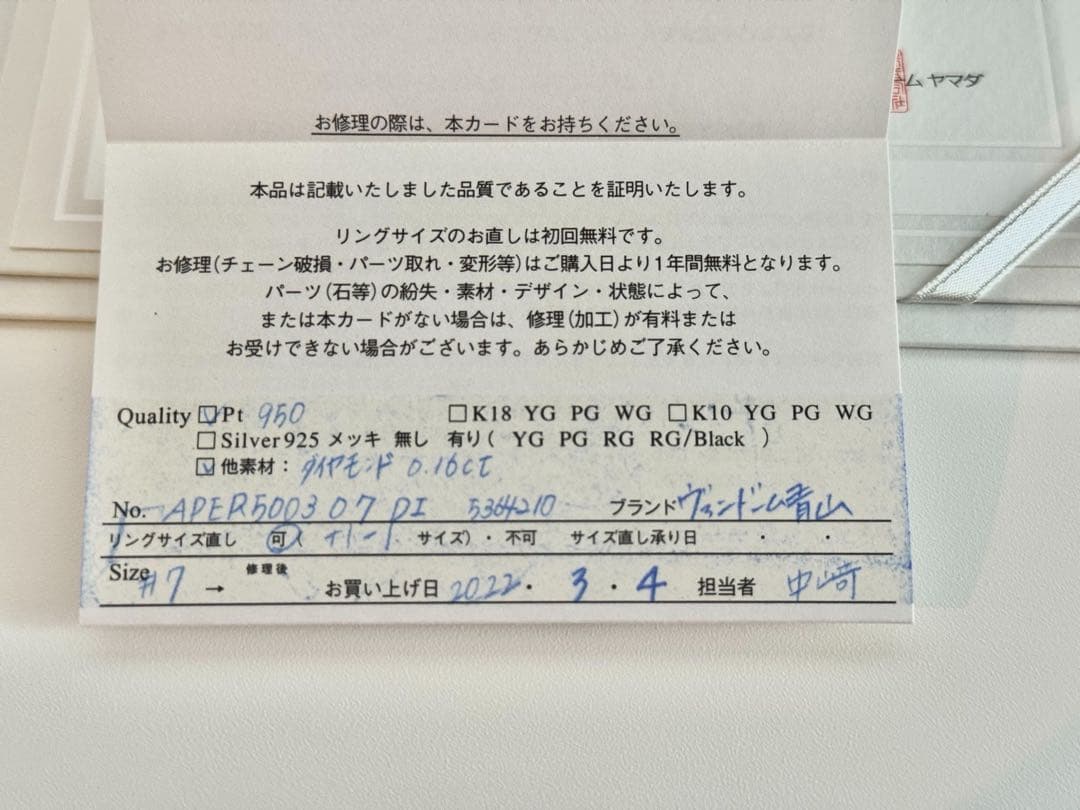 ームヤマダ
お修理の際は、本カードをお持ちください。
本品は記載いたしました品質であることを証明いたします。
リングサイズのお直しは初回無料です。
お修理(チェーン破損・パーツ取れ・変形等)はご購入日より1年間無料となります。
パーツ(石等)の紛失・素材・デザイン・状態によって、
または本カードがない場合は、修理(加工)が有料または
お受けできない場合がございます。あらかじめご了承ください。
Quality ☑Pt 950 □K18 YG PG WG □K10 YG PG WG
□Silver925 メッキ 無し 有り( YG PG RG RG/Black )
☑他素材：ダイヤモンド 0.16ct
No. APER5003 07 DI 5364210 ブランド ヴァンドーム青山
リングサイズ直し 可( サイズ)・不可 サイズ直し承り日 ・ ・
Size #7 → 修理後 お買い上げ日 2022・3・4 担当者 中崎